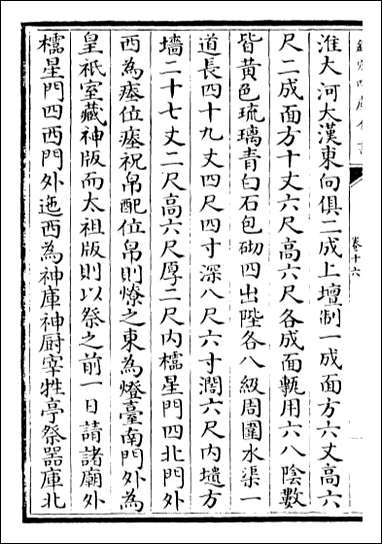 淮大河大漢東向俱二成上壇制一成面方六丈高六
尺二成面方十丈六尺高六尺各成面甎用六八陰數
皆黄色琉璃青白石包砌四出陛各八級周圍水渠一
道長四十九丈四尺四寸深八尺六寸濶六尺内壝方
墻二十七丈二尺高六尺厚二尺内櫺星門四北門外
西為瘞位瘞祝帛配位帛則燎之東為燈臺南門外為
皇祇室藏神版而太祖版則以祭之前一日請諸廟外
櫺星門四西門外迤西為神庫神厨宰牲亭祭器庫北
卷十六